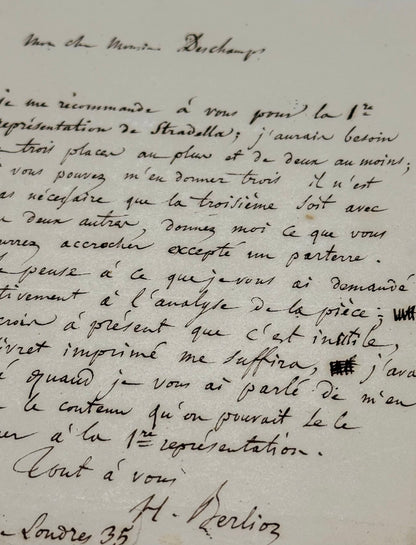 Mon cher Monsieur Deschamps
je me recommande à vous pour la 1re
représentation de Stradella; j'aurais besoin
trois places au plus et de deux au moins;
vous pouvez m'en donner trois il n'est
pas nécessaire que la troisième soit avec
deux autres, donnez moi ce que vous
pourrez accrocher excepté un parterre.
pense à ce que je vous ai demandé
à l'analyse de la pièce;
crois à présent que c'est inutile,
livret imprimé me suffira, j'ava
quand je vous ai parlé de m'en
le contenu qu'on pouvait se le
à la 1re représentation.
Tout à vous
H. Berlioz
Londres 35